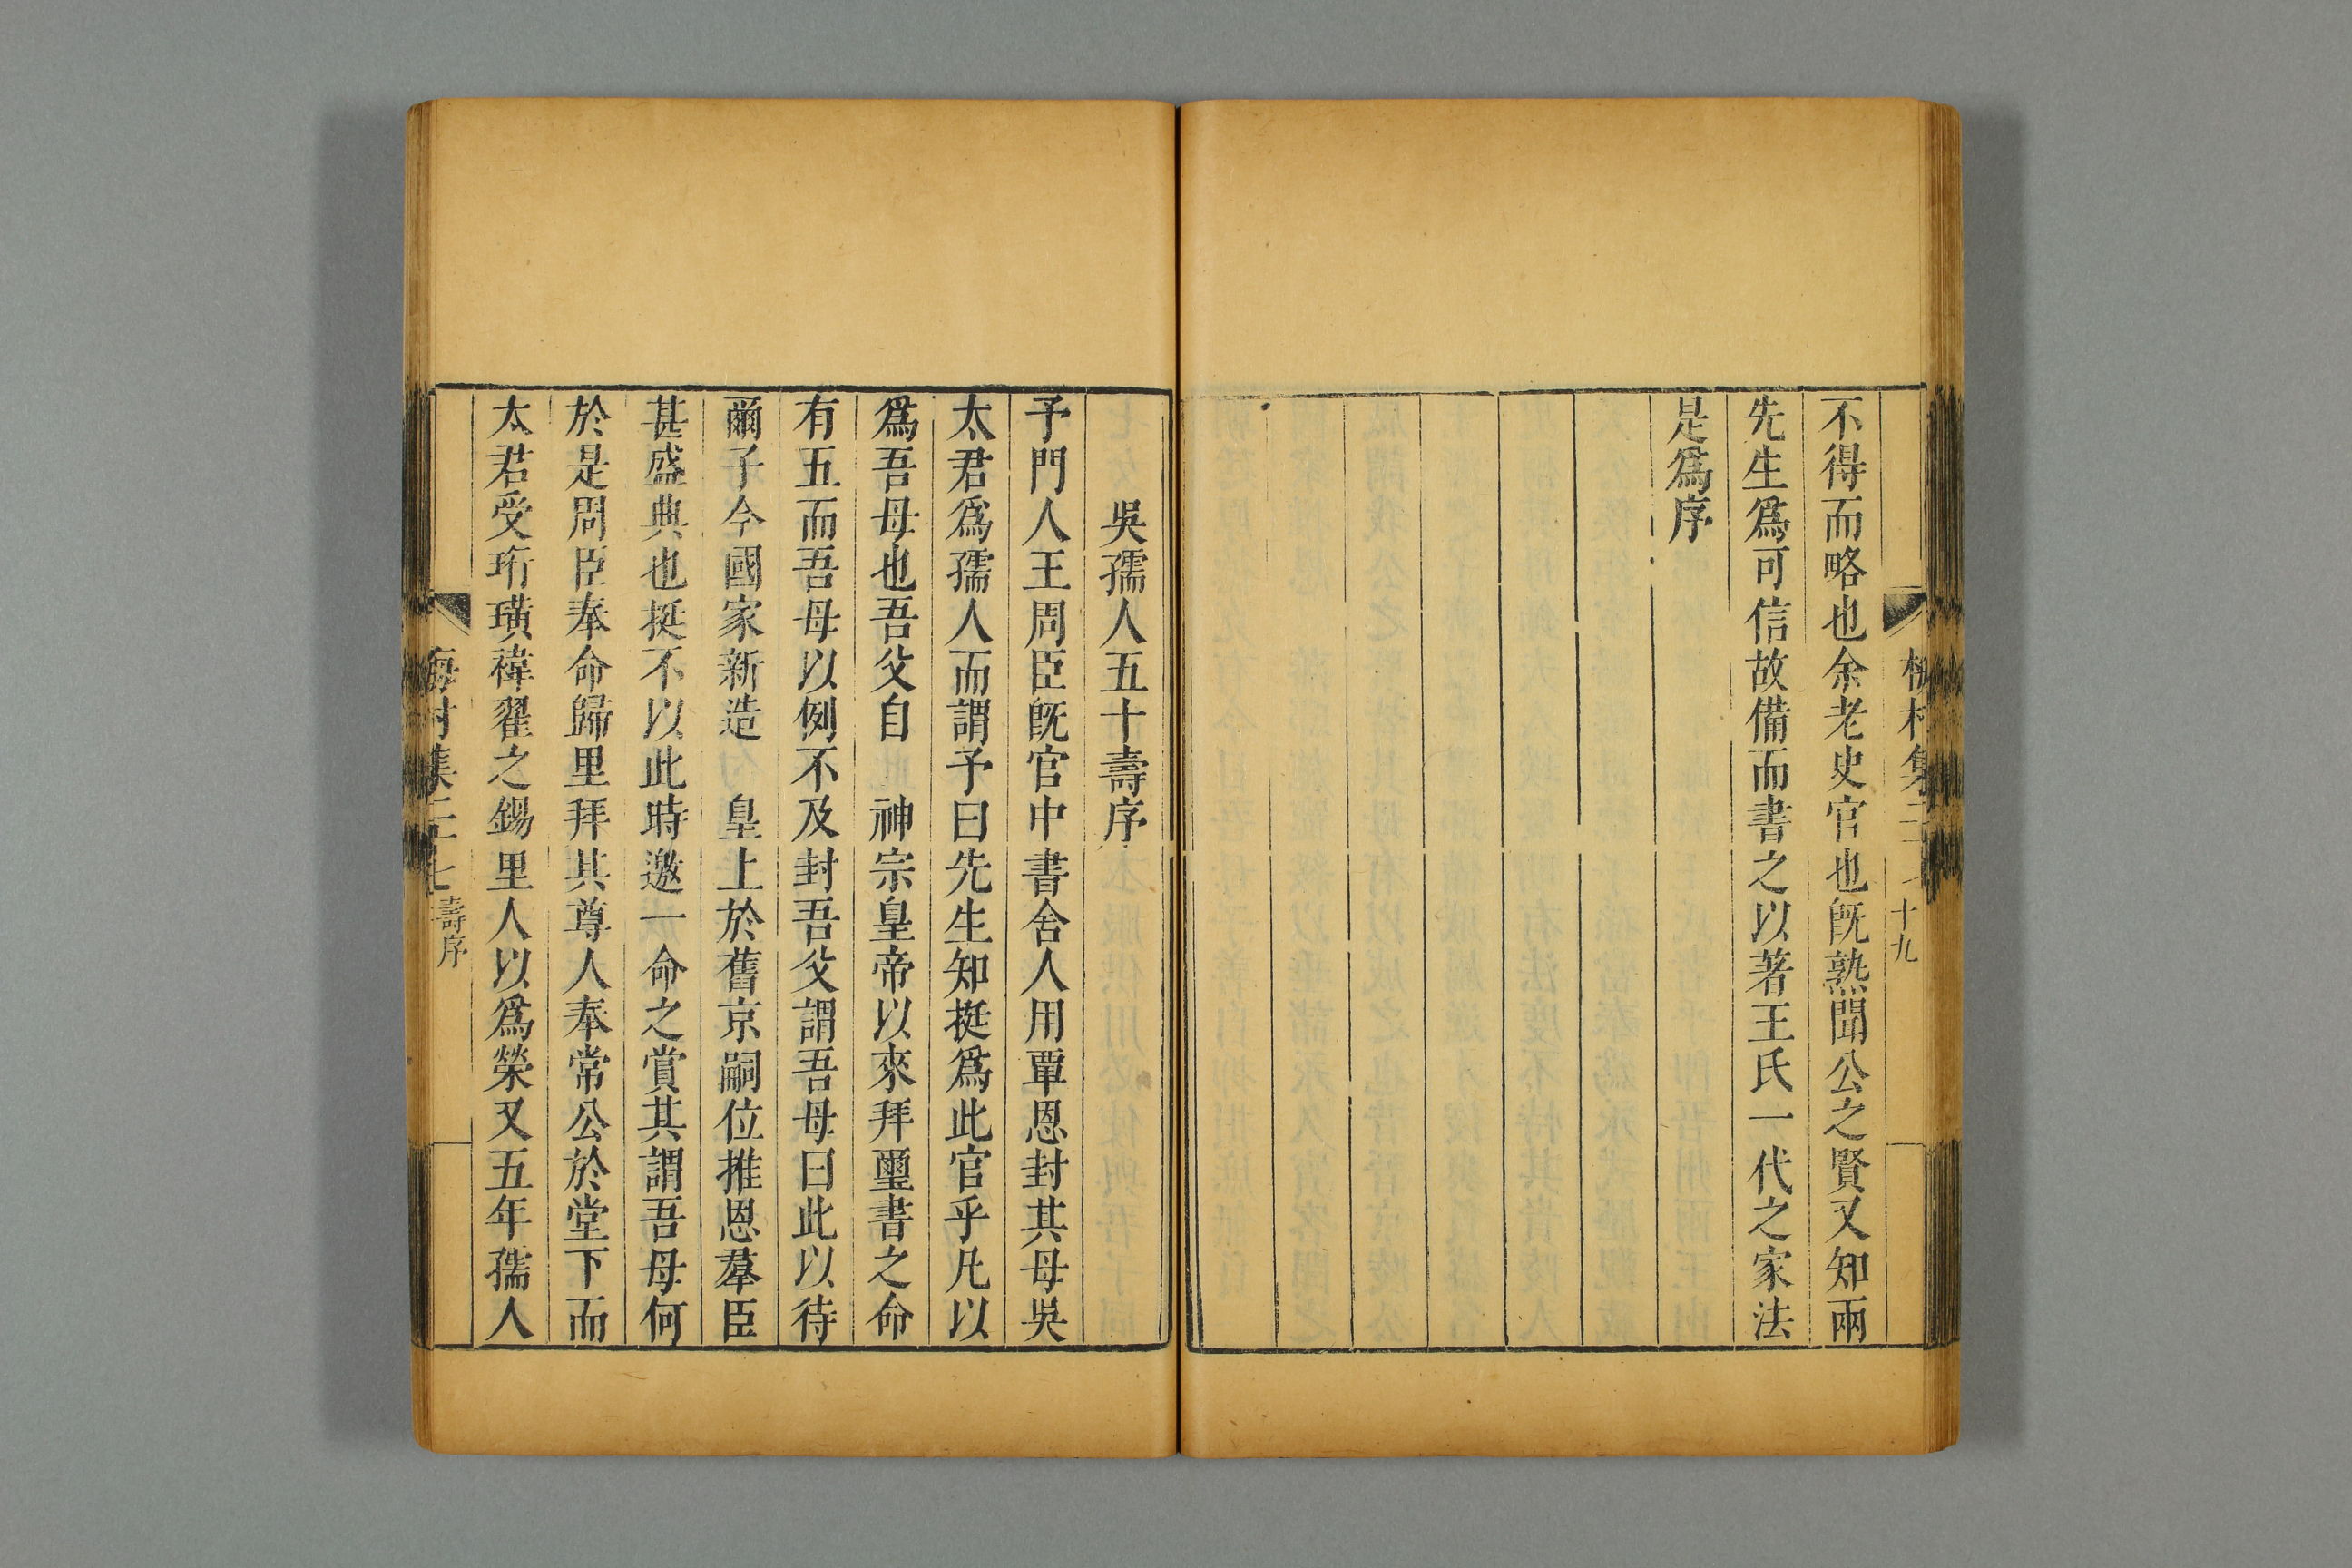 十九
不得而略也余老史官也旣熟聞公之賢又知兩
先生爲可信故備而書之以著王氏一代之家法
是爲序
吳孺人五十壽序
予門人王周臣旣官中書舍人用覃恩封其母吳
太君爲孺人而謂予曰先生知挺爲此官乎凡以
爲吾母也吾父自 神宗皇帝以來拜璽書之命
有五而吾母以例不及封吾父謂吾母曰此以待
爾子今國家新造 皇上於舊京嗣位推恩羣臣
甚盛典也挺不以此時邀一命之賞其謂吾母何
於是周臣奉命歸里拜其尊人奉常公於堂下而
太君受珩璜褘翟之錫里人以爲榮又五年孺人
壽序